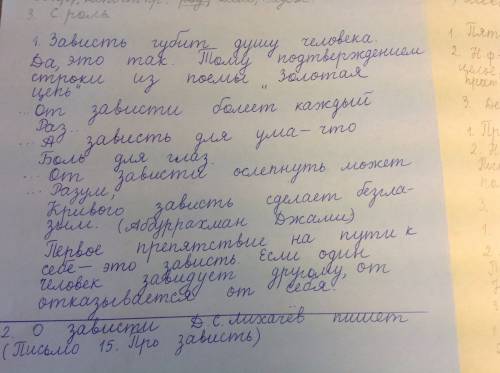 3. С. роль
1. Зависть губит душу человека.
Да, это так. Тому подтверждением
строки из поемы „Золотая
цепь"
... От зависти болеет каждый
Раз..
... А зависть для ума – что
Боль для глаз.
... От зависти ослепнуть может
Разум,
Кривого зависть сделает безгла-
зым. (Абдуррахман Джами)
Первое препятствие на пути к
себе – это зависть. Если один
человек завидует другому, от
отказывается от себя.
2 О зависти Д.С. Лихачёв пишет
(Письмо 15. Про зависть)
1. Пят
2. Н.ф-
целое
3.
1. Пр
2. Н
3.
1
2.